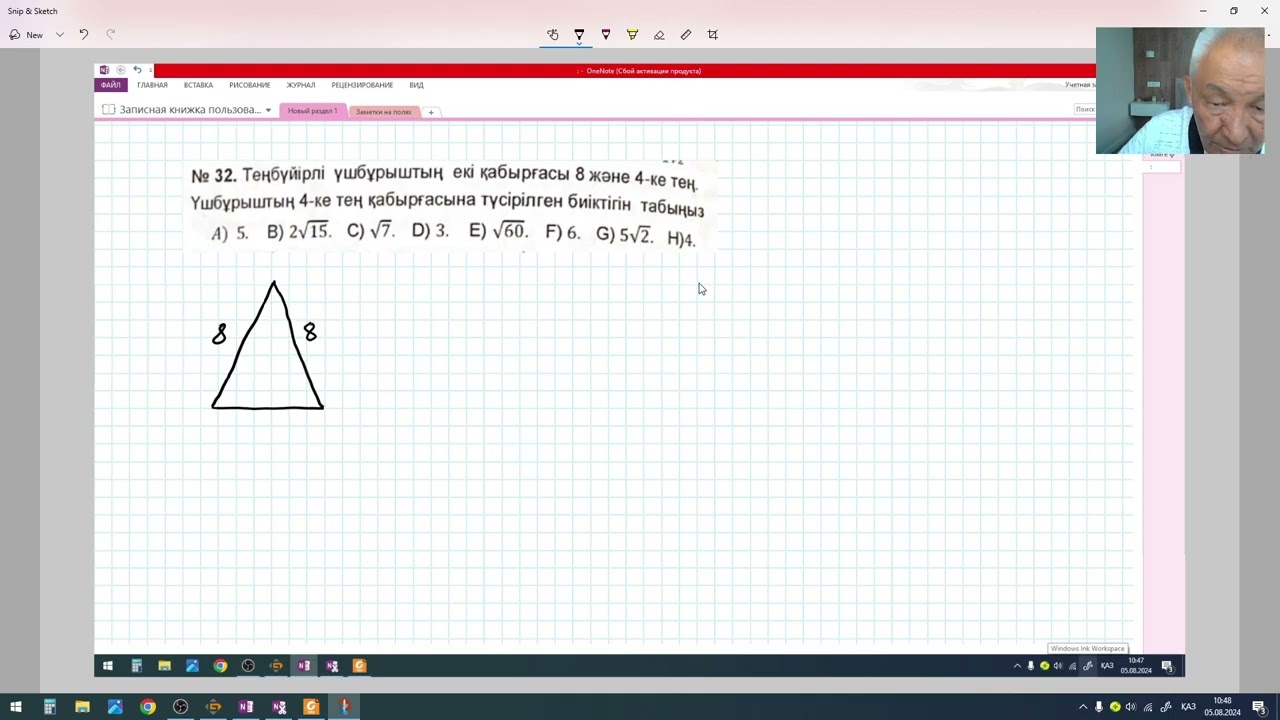 Snip & Sketch
New
: - OneNote (Сбой активации продукта)
ФАЙЛ ГЛАВНАЯ ВСТАВКА РИСОВАНИЕ ЖУРНАЛ РЕЦЕНЗИРОВАНИЕ ВИД
Учетная за
Записная книжка пользова... Новый раздел 1 Заметки на полях +
Поиск
№ 32. Теңбүйірлі үшбұрыштың екі қабырғасы 8 және 4-ке тең.
Үшбұрыштың 4-ке тең қабырғасына түсірілген биіктігін табыңыз
A) 5. B) 2√15. C) √7. D) 3. E) √60. F) 6. G) 5√2. H)4.
8 8
Windows Ink Workspace
ҚАЗ 10:47
05.08.2024
ҚАЗ 10:48
05.08.2024